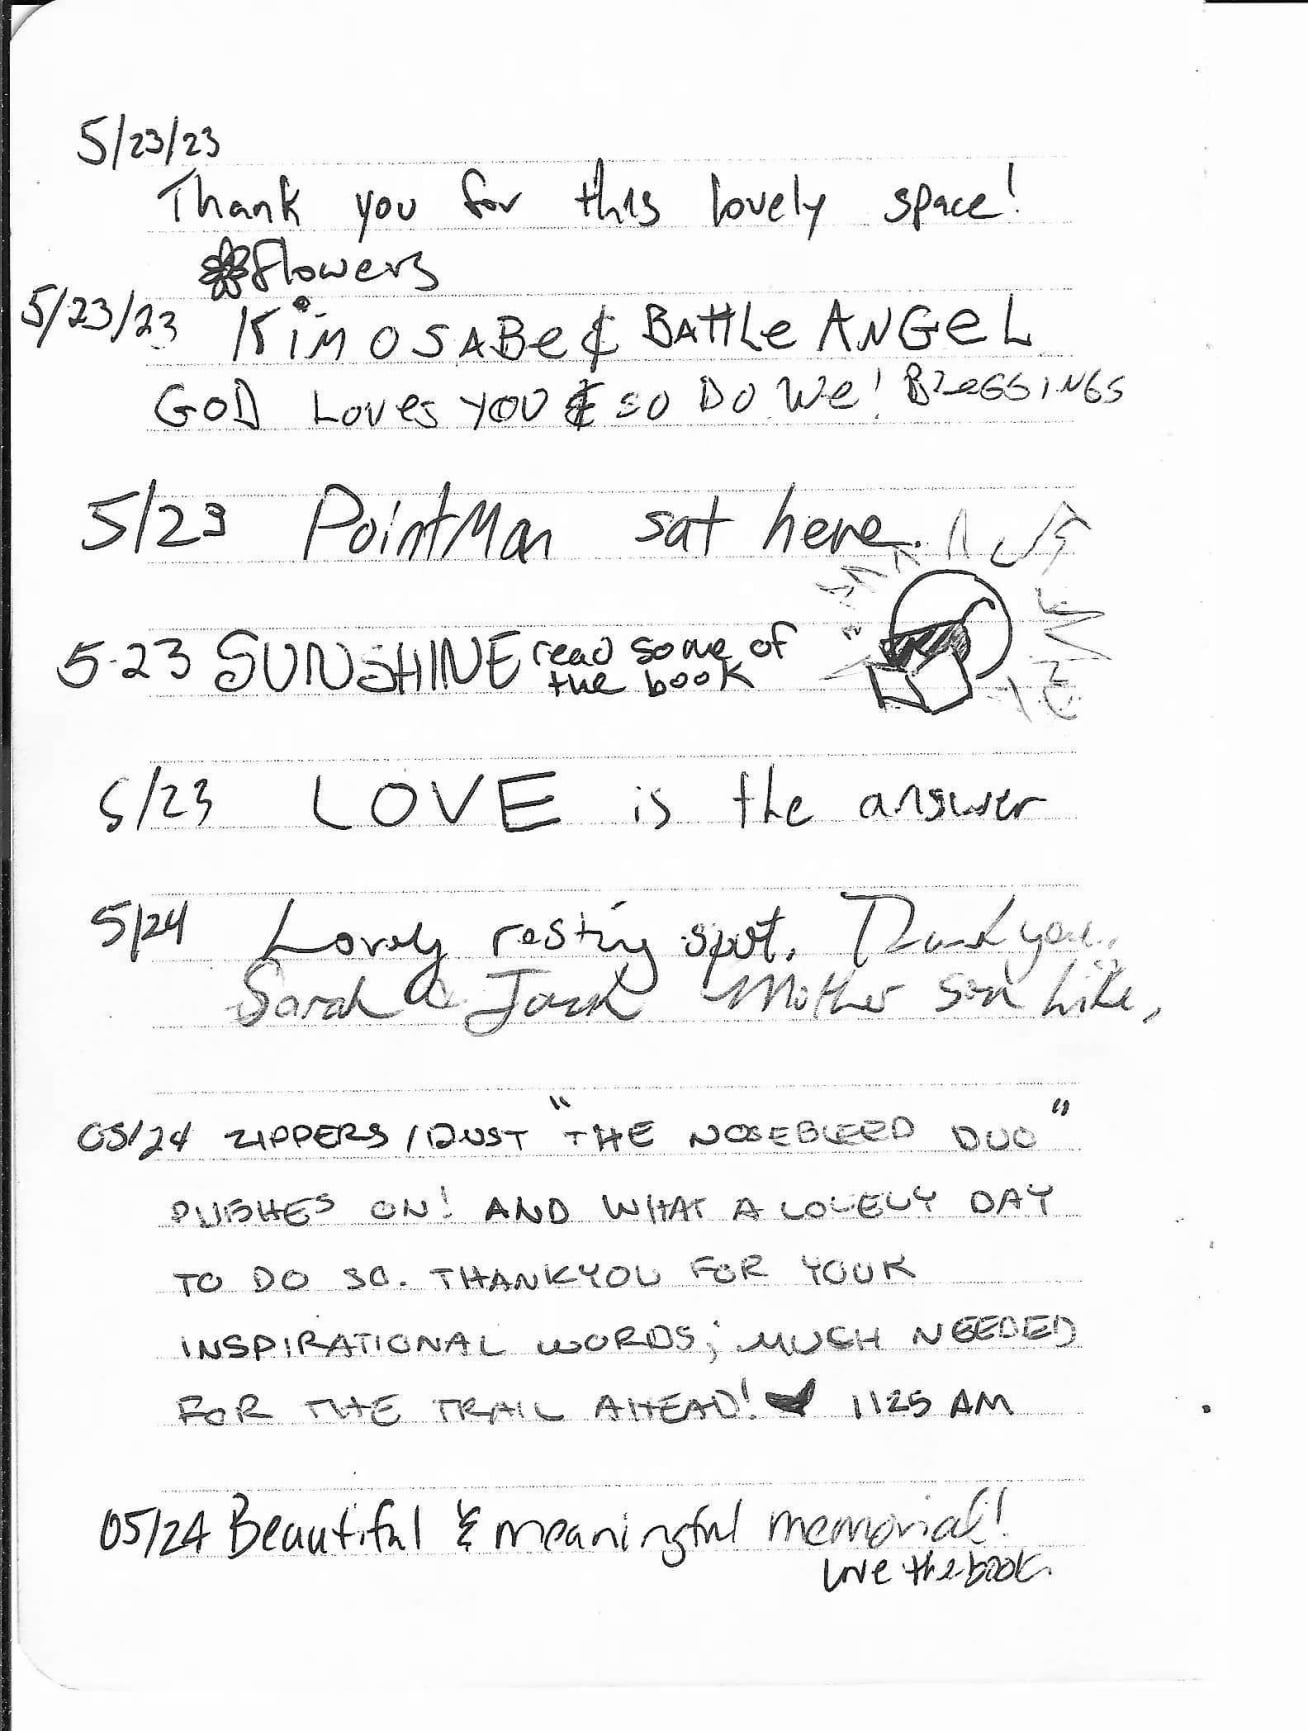 5/23/23
Thank you for this lovely space!
flowers
5/23/23 KiMOSABe & BATTLe ANGeL
GOD Loves YOU & SO DO We! BLeSSINGS
5/23 PointMan sat here.
5-23 SUNSHINE read some of
the book
5/23 LOVE is the answer
5/24 Lovely resting spot. Thank you.
Sarah & Mother Son hike,
05/24 ZIPPERS / DUST "THE NOSEBLEED DUO"
PUSHES ON! AND WHAT A LOVELY DAY
TO DO SO. THANKYOU FOR YOUR
INSPIRATIONAL WORDS; MUCH NEEDED
FOR THE TRAIL AHEAD! ♥ 1125 AM
05/24 Beautiful & meaningful memorial!
Love the book.